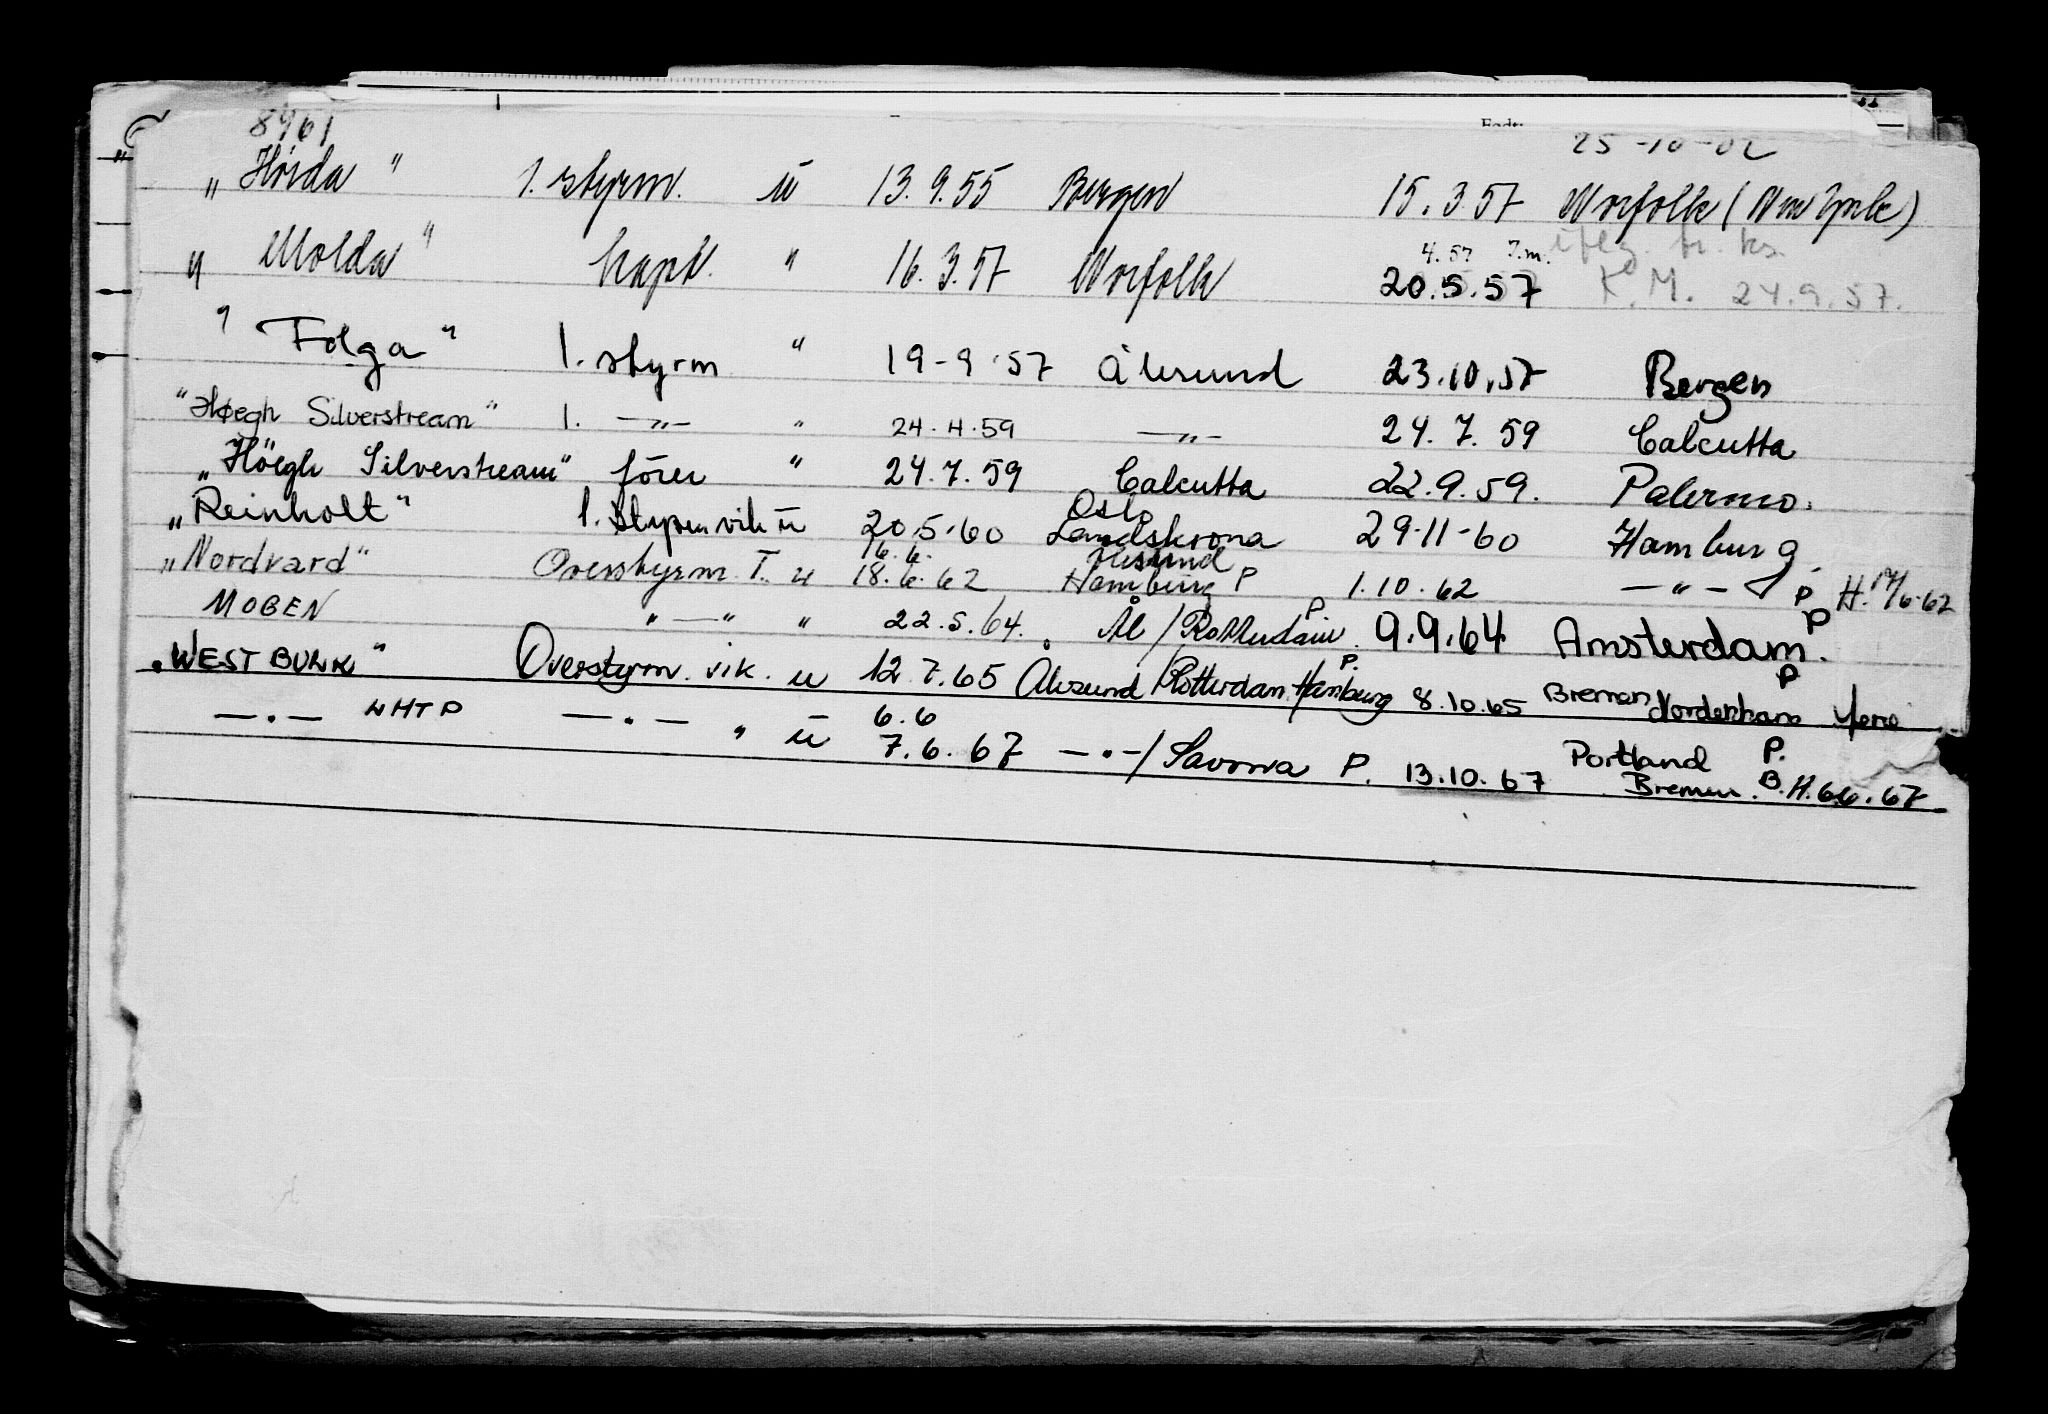 8961 25-10-02
„Hörda" 1. styrm. u 13.9.55 Bergen 15.3.57 Norfolk (New York)
4.57 I.m.
„ Molda" kapt. " 16.3.57 Norfolk 20.5.57 K.M. 24.9.57.
" Folga" 1. styrm " 19-9-57 Ålesund 23.10.57 Bergen
"Høegh Silverstream" 1. —„— " 24.4.59 —„— 24.7.59 Calcutta
„Höegh Silverstream" förer " 24.7.59 Calcutta 22.9.59. Palermo.
Oslo
„Reinholt" 1. styrm vik u 20.5.60 Landskrona 29-11-60 Hamburg
16.6. Ålesund
„Nordvard" Overstyrm. I. u 18.6.62 Hamburg P 1.10.62 —"— P H. 14/6.62
MOBEN "—" " 22.5.64. Ål/Rotterdam P. 9.9.64 Amsterdam. P
„WEST BUNK" Overstyrm. vik. u 12.7.65 Ålesund Rotterdam. Hamburg P. 8.10.65 Bremen Nordenham P
—.— NHTP —.— " u 6.6
7.6.67 —.—/Savona P. 13.10.67 Portland P.
Bremen. B. H. 6.6.67